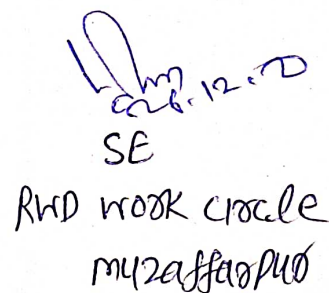 26.12.20
SE
RWD work circle
muzaffarpur